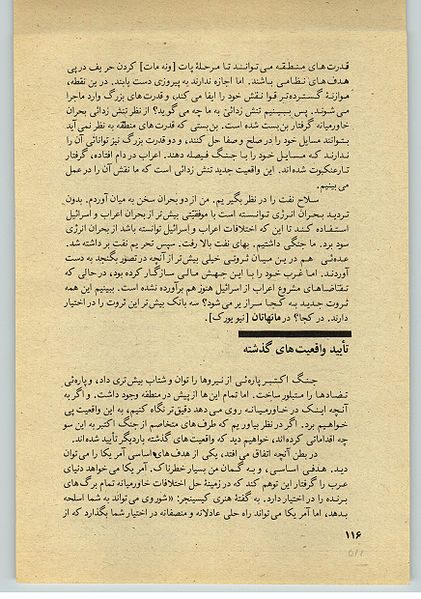 قدرت‌های منطقه می‌توانند تا مرحلهٔ پات [ونه مات] کردن حریف درپی
هدف‌های نظامی باشند. اما اجازه ندارند به پیروزی دست یابند. در این نقطه،
موازنهٔ گسترده‌تر قوا نقش خود را ایفا می‌کند، و قدرت‌های بزرگ وارد ماجرا
می‌شوند. پس ببینیم تنش زدائی به ما چه می‌گوید؟ از نظر تنش زدائی بحران
خاورمیانه گرفتار بن‌بست شده است. بن‌بستی که قدرت‌های منطقه به نظر نمی‌آید
بتوانند مسایل خود را در صلح و صفا حل کنند، و دو قدرت بزرگ نیز توانائی آن را
ندارند که مسایل خود را با جنگ فیصله دهند. اعراب در دام افتاده، گرفتار
تارعنکبوت شده‌اند. این واقعیت جدید تنش زدائی است که ما نقش آن را در عمل
می‌بینیم.
سلاح نفت را در نظر بگیریم. من از دو بحران سخن به میان آوردم. بدون
تردید بحران انرژی توانسته است با موفقیتی بیش‌تر از بحران اعراب و اسرائیل
استفاده کند تا این که اختلافات اعراب و اسرائیل توانسته باشد از بحران انرژی
سود برد. ما جنگی داشتیم. بهای نفت بالا رفت. سپس تحریم نفت برداشته شد.
عده‌ئی هم در این میان ثروتی خیلی بیش‌تر از آنچه در تصور بگنجد به دست
آوردند. اما غرب خود را با این جهش مالی سازگار کرده بود، در حالی که
تقاضاهای مشروع اعراب از اسرائیل هنوز هم برآورده نشده است. ببینیم این همه
ثروت جدید به کجا سرازیر می‌شود؟ سه بانک بیش‌تر این ثروت را در اختیار
دارند. در کجا؟ در مانهاتان [نیویورک].
تأیید واقعیت‌های گذشته
جنگ اکتبر پاره‌ئی از نیروها را توان و شتاب بیش‌تری داد، و پاره‌ئی
تضادها را متبلور ساخت. اما تمام این‌ها از پیش در منطقه وجود داشت. و اگر به
آنچه اینک در خاورمیانه روی می‌دهد دقیق‌تر نگاه کنیم، به این واقعیت پی
خواهیم برد. اگر در نظر بیاوریم که طرف‌های متخاصم از جنگ اکتبر به این سو
چه اقداماتی کرده‌اند، خواهیم دید که واقعیت‌های گذشته باردیگر تأیید شده‌اند.
در بطن آنچه اتفاق می‌افتد، یکی از هدف‌های‌اساسی آمریکا را می‌توان
دید. هدفی اساسی، و به گمان من بسیار خطرناک. آمریکا می‌خواهد دنیای
عرب را گرفتار این توهم کند که در زمینهٔ حل اختلافات خاورمیانه تمام برگ‌های
برنده را در اختیار دارد. به گفتهٔ هنری کیسینجر: «شوروی می‌تواند به شما اسلحه
بدهد، اما آمریکا می‌تواند راه حلی عادلانه و منصفانه در اختیار شما بگذارد که از
۱۱۶